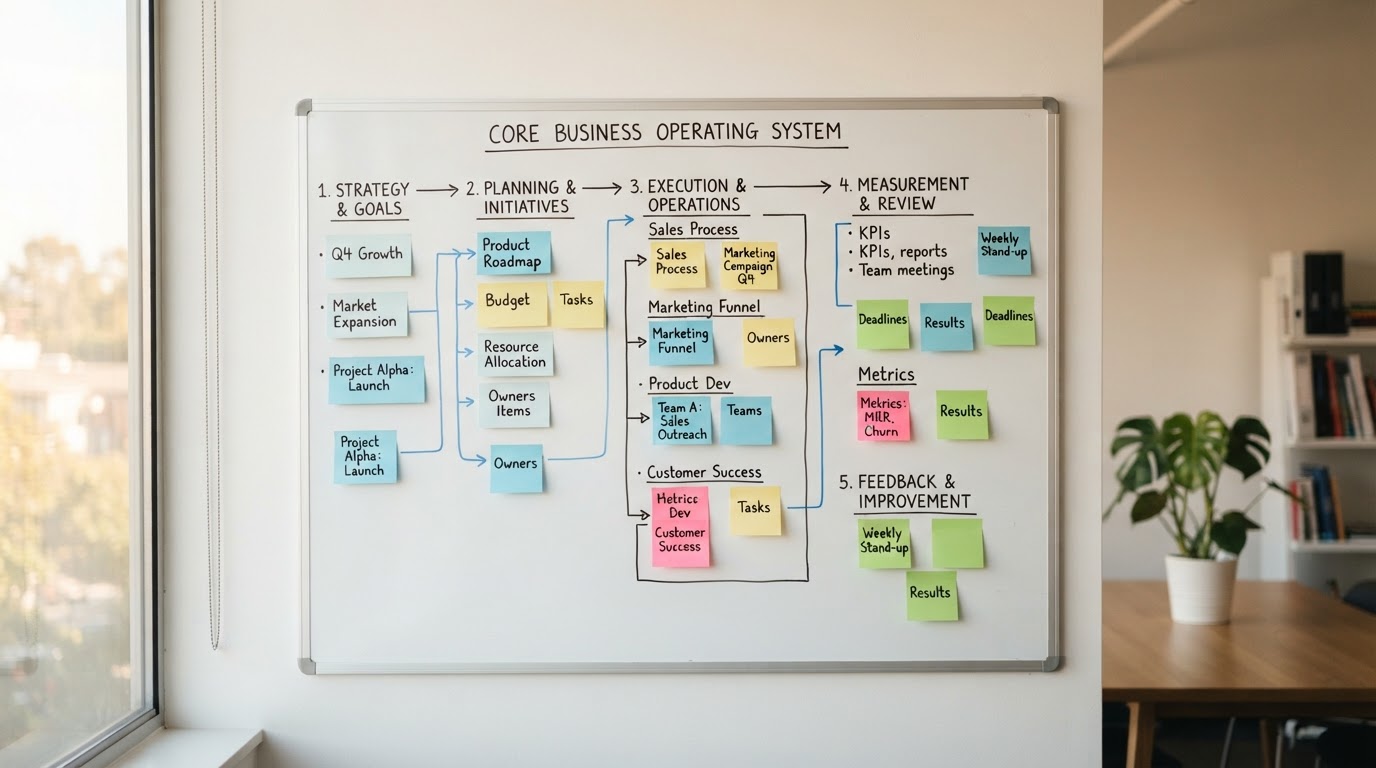 CORE BUSINESS OPERATING SYSTEM
1. STRATEGY
& GOALS
• Q4 Growth
• Market
Expansion
• Project Alpha:
Launch
Project
Alpha:
Launch
2. PLANNING &
INITIATIVES
Product
Roadmap
Budget
Tasks
Resource
Allocation
Owners
Items
Owners
3. EXECUTION &
OPERATIONS
Sales Process
Sales
Process
Marketing
Cempaign
Q4
Marketing Funnel
Marketing
Funnel
Owners
• Product Dev
Team A:
Sales
Outreach
Teams
• Customer Success
Dev
Customer
Success
Tasks
4. MEASUREMENT
& REVIEW
• KPIs
• KPIs, reports
• Team meetings
Weekly
Stand-up
Deadlines
Results
Deadlines
Metrics
Churn
Results
5. FEEDBACK &
IMPROVEMENT
Weekly
Stand-up
Results